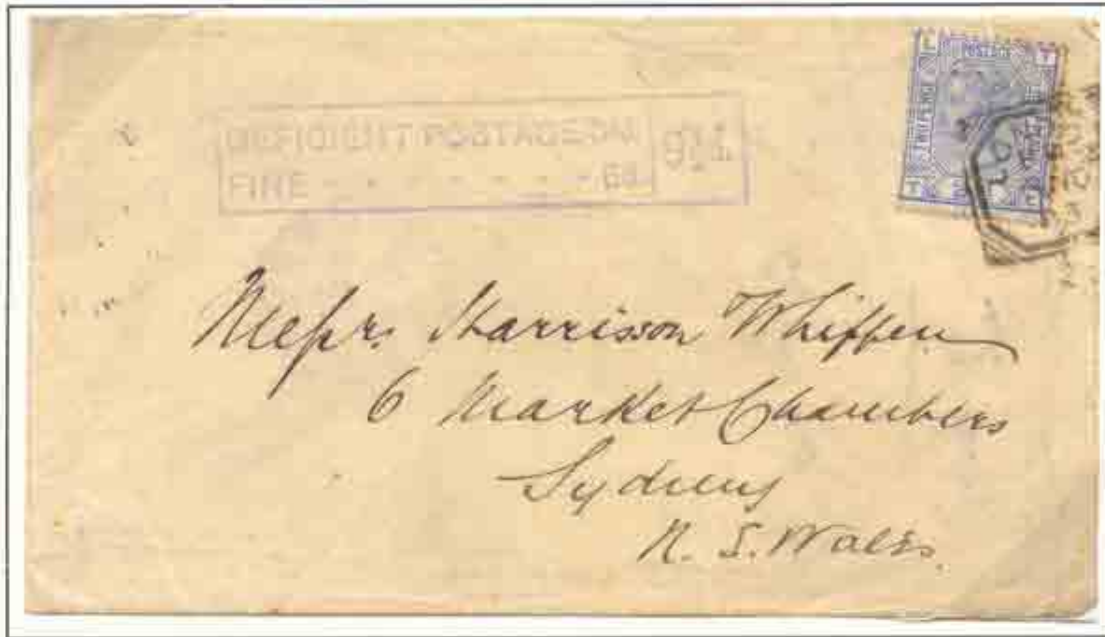 DEFICIENT POSTAGE 3½
FINE - - - - - - - 6d
9½d
L POSTAGE T
T L
Messrs Harrison Whiffen
6 Market Chambers
Sydney
N. S. Wales.